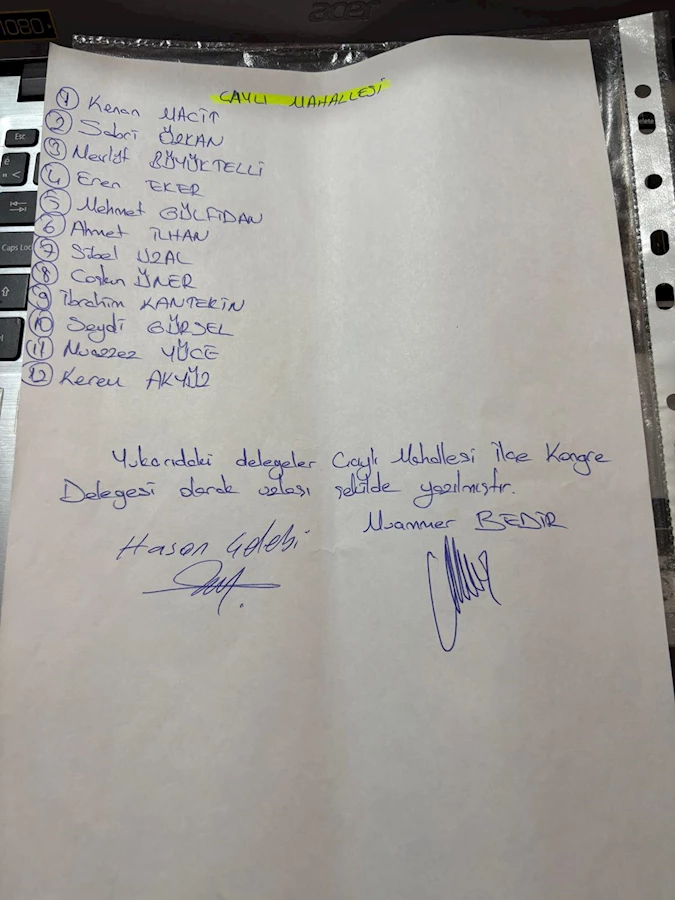 acer
1080
Esc
Caps Loc
delete
ÇAYLI MAHALLESİ
1 Kenan MACİT
2 Sabri ÖZKAN
3 Mevlüt BÜYÜKTELLİ
4 Eren EKER
5 Mehmet GÜLFİDAN
6 Ahmet İLHAN
7 Sibel UZAL
8 Coşkun ÖNER
9 İbrahim KANTEKİN
10 Seydi GÜRSEL
11 Muazzez YÜCE
12 Kerem AKYÜZ
Yukarıdaki delegeler Çaylı Mahallesi İlçe Kongre
Delegesi olarak uzlaşı şekilde yazılmıştır.
Muammer BEDİR
Hasan Çelebi